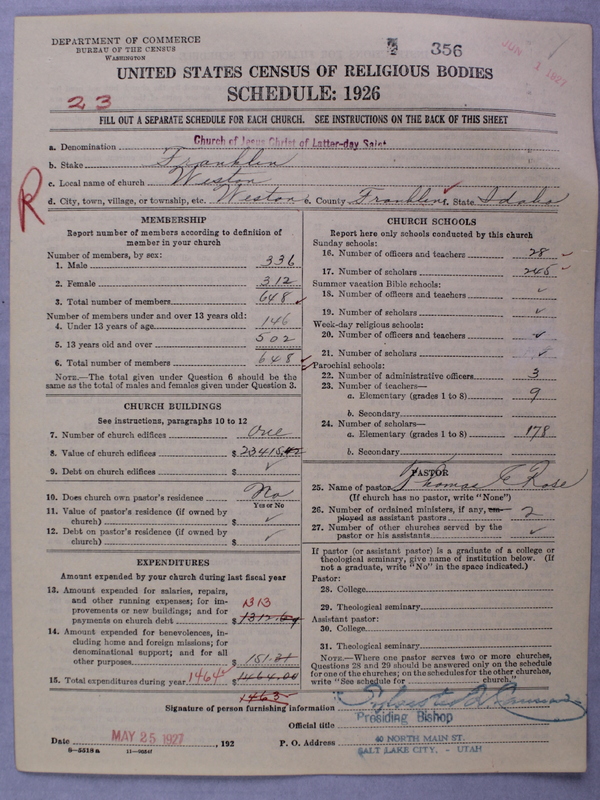 DEPARTMENT OF COMMERCE
BUREAU OF THE CENSUS
WASHINGTON
356
JUN 1 1927
UNITED STATES CENSUS OF RELIGIOUS BODIES
SCHEDULE: 1926
23
FILL OUT A SEPARATE SCHEDULE FOR EACH CHURCH. SEE INSTRUCTIONS ON THE BACK OF THIS SHEET
a. Denomination Church of Jesus Christ of Latter-day Saint
b. Stake Franklin
c. Local name of church Weston
d. City, town, village, or township, etc. Weston e. County Franklin f. State Idaho
R
MEMBERSHIP
Report number of members according to definition of
member in your church
Number of members, by sex:
1. Male 336
2. Female 312
3. Total number of members 648
Number of members under and over 13 years old:
4. Under 13 years of age 146
5. 13 years old and over 502
6. Total number of members 648
NOTE.—The total given under Question 6 should be the
same as the total of males and females given under Question 3.
CHURCH BUILDINGS
See instructions, paragraphs 10 to 12
7. Number of church edifices One
8. Value of church edifices $23415
9. Debt on church edifices $
10. Does church own pastor's residence No
Yes or No
11. Value of pastor's residence (if owned by
church) $
12. Debt on pastor's residence (if owned by
church) $
EXPENDITURES
Amount expended by church during last fiscal year
13. Amount expended for salaries, repairs,
and other running expenses; for im-
provements or new buildings; and for
payments on church debt 1313 $1312.69
14. Amount expended for benevolences, in-
cluding home and foreign missions; for
denominational support; and for all
other purposes $151.31
15. Total expenditures during year 1464 $1464.00
1463
CHURCH SCHOOLS
Report here only schools conducted by this church
Sunday schools:
16. Number of officers and teachers 28
17. Number of scholars 245
Summer vacation Bible schools:
18. Number of officers and teachers
19. Number of scholars
Week-day religious schools:
20. Number of officers and teachers
21. Number of scholars
Parochial schools:
22. Number of administrative officers 3
23. Number of teachers—
a. Elementary (grades 1 to 8) 9
b. Secondary
24. Number of scholars—
a. Elementary (grades 1 to 8) 178
b. Secondary
PASTOR
25. Name of pastor Thomas E Rose
(If church has no pastor, write "None")
26. Number of ordained ministers, if any, em-
ployed as assistant pastors 2
27. Number of other churches served by the
pastor or his assistants
If pastor (or assistant pastor) is a graduate of a college or
theological seminary, give name of institution below. (If
not a graduate, write "No" in the space indicated.)
Pastor:
28. College
29. Theological seminary
Assistant pastor:
30. College
31. Theological seminary
NOTE.—Where one pastor serves two or more churches,
Questions 28 and 29 should be answered only on the schedule
for one of the churches; on the schedules for the other churches,
write "See schedule for church."
Signature of person furnishing information Sylvester Q Cannon
Official title Presiding Bishop
Date MAY 25 1927, 192 P. O. Address 40 NORTH MAIN ST.
SALT LAKE CITY, - UTAH
8-5518a 11-00547